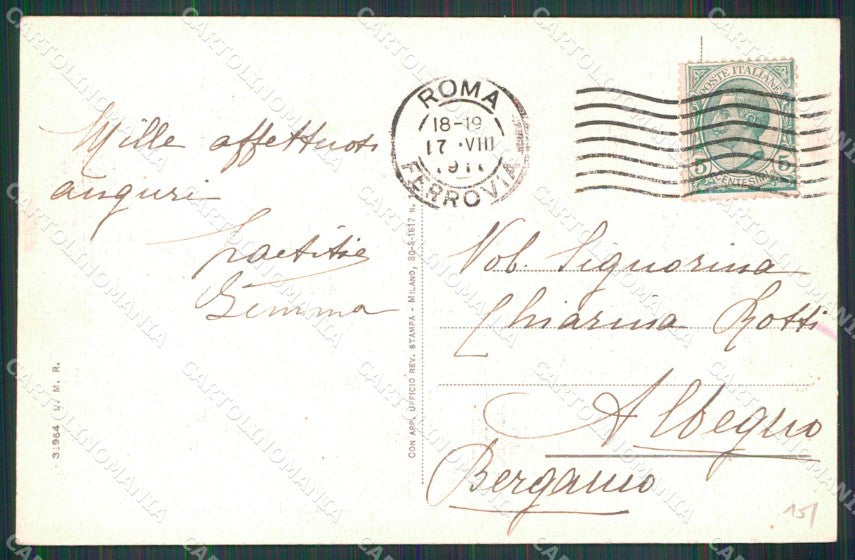 Mille affettuosi
auguri
Laetitie
Gemma
ROMA
18-19
17 · VIII
FERROVIA
POSTE ITALIANE
5 CENTESIMI 5
Nob. Signorina
Chiarina Rotti
Albegno
Bergamo
CON APP. UFFICIO REV. STAMPA - MILANO, 30-3-1917 N.
31964 U. M. R.
15/
CARTOLINOMANIA